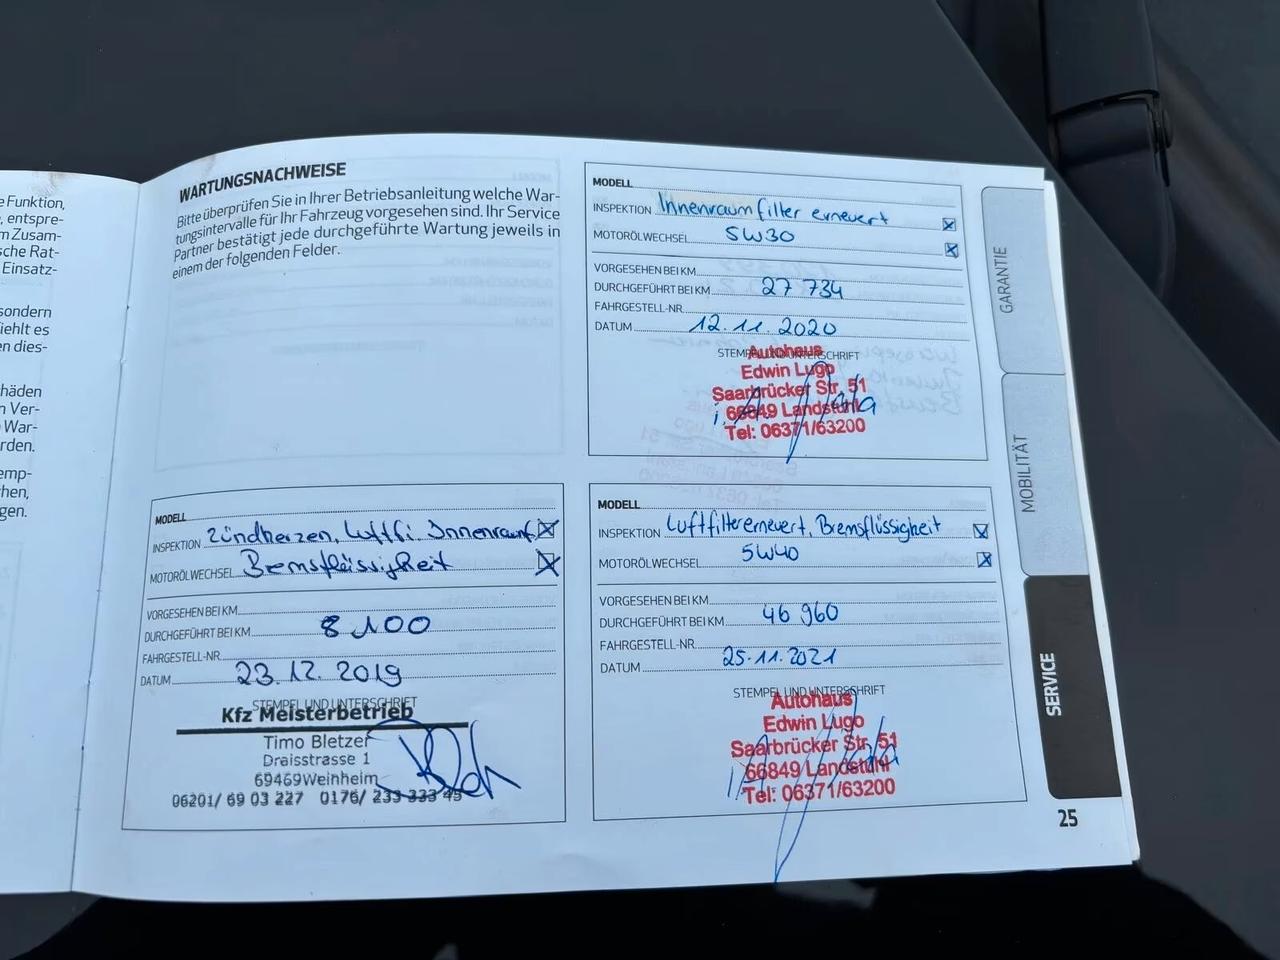 e Funktion,
, entspre-
m Zusam-
sche Rat-
Einsatz-
sondern
iehlt es
en dies-
häden
n Ver-
War-
rden.
emp-
chen,
gen.
WARTUNGSNACHWEISE
Bitte überprüfen Sie in Ihrer Betriebsanleitung welche War-
tungsintervalle für Ihr Fahrzeug vorgesehen sind. Ihr Service
Partner bestätigt jede durchgeführte Wartung jeweils in
einem der folgenden Felder.
MODELL
INSPEKTION Zündkerzen, Luftfi. Innenraumf.
MOTORÖLWECHSEL Bremsflüssigkeit
VORGESEHEN BEI KM
DURCHGEFÜHRT BEI KM 8 100
FAHRGESTELL-NR.
DATUM 23.12.2019
STEMPEL UND UNTERSCHRIFT
Kfz Meisterbetrieb
Timo Bletzer
Draisstrasse 1
69469 Weinheim
06201/ 69 03 227 0176/ 233 333 43
MODELL
INSPEKTION Innenraumfilter erneuert
MOTORÖLWECHSEL 5W30
VORGESEHEN BEI KM
DURCHGEFÜHRT BEI KM 27 734
FAHRGESTELL-NR.
DATUM 12.11.2020
STEMPEL UND UNTERSCHRIFT
Autohaus
Edwin Lugo
Saarbrücker Str. 51
66849 Landstuhl
Tel: 06371/63200
MODELL
INSPEKTION Luftfilter erneuert, Bremsflüssigkeit
MOTORÖLWECHSEL 5W40
VORGESEHEN BEI KM
DURCHGEFÜHRT BEI KM 46 960
FAHRGESTELL-NR.
DATUM 25.11.2021
STEMPEL UND UNTERSCHRIFT
Autohaus
Edwin Lugo
Saarbrücker Str. 51
66849 Landstuhl
Tel: 06371/63200
GARANTIE
MOBILITÄT
SERVICE
25